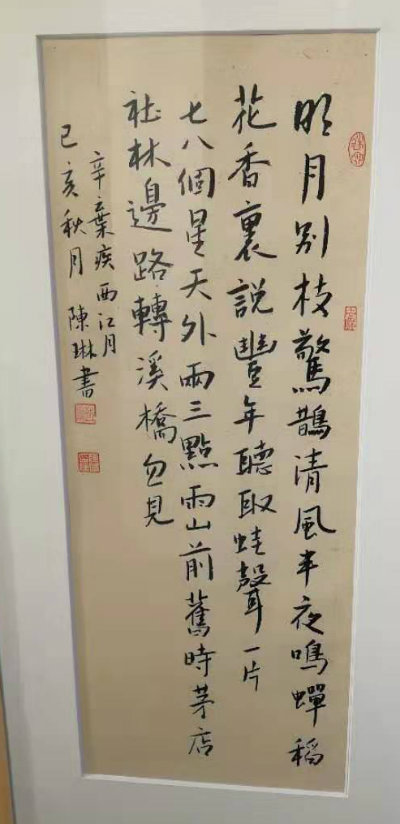 明月别枝驚鵲清風半夜鳴蟬稻
花香裏說豐年聽取蛙聲一片
七八個星天外兩三點雨山前舊時茅店
社林邊路轉溪橋忽見
辛棄疾西江月
己亥秋月 陳琳書